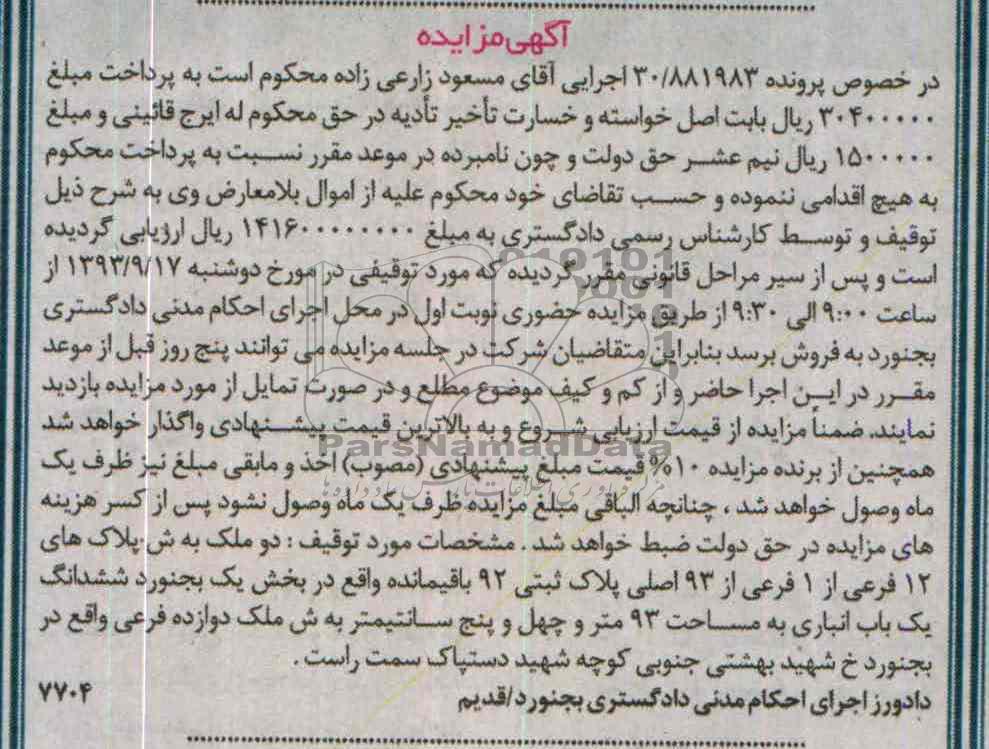 آگهی مزایده
در خصوص پرونده ۳۰/۸۸۱۹۸۳ اجرایی آقای مسعود زارعی زاده محکوم است به پرداخت مبلغ
۳۰۴۰۰۰۰۰ ریال بابت اصل خواسته و خسارت تأخیر تأدیه در حق محکوم له ایرج قائینی و مبلغ
۱۵۰۰۰۰۰ ریال نیم عشر حق دولت و چون نامبرده در موعد مقرر نسبت به پرداخت محکوم
به هیچ اقدامی ننموده و حسب تقاضای خود محکوم علیه از اموال بلامعارض وی به شرح ذیل
توقیف و توسط کارشناس رسمی دادگستری به مبلغ ۱۴۱۶۰۰۰۰۰۰۰۰ ریال ارزیابی گردیده
است و پس از سیر مراحل قانونی مقرر گردیده که مورد توقیفی در مورخ دوشنبه ۱۳۹۳/۹/۱۷ از
ساعت ۹:۰۰ الی ۹:۳۰ از طریق مزایده حضوری نوبت اول در محل اجرای احکام مدنی دادگستری
بجنورد به فروش برسد بنابراین متقاضیان شرکت در جلسه مزایده می توانند پنج روز قبل از موعد
مقرر در این اجرا حاضر و از کم و کیف موضوع مطلع و در صورت تمایل از مورد مزایده بازدید
نمایند. ضمناً مزایده از قیمت ارزیابی شروع و به بالاترین قیمت پیشنهادی واگذار خواهد شد
ParsNamadData
همچنین از برنده مزایده ۱۰% قیمت مبلغ پیشنهادی (مصوب) اخذ و مابقی مبلغ نیز ظرف یک
ماه وصول خواهد شد ، چنانچه الباقی مبلغ مزایده ظرف یک ماه وصول نشود پس از کسر هزینه
های مزایده در حق دولت ضبط خواهد شد . مشخصات مورد توقیف : دو ملک به ش پلاک های
۱۲ فرعی از ۱ فرعی از ۹۳ اصلی پلاک ثبتی ۹۲ باقیمانده واقع در بخش یک بجنورد ششدانگ
یک باب انباری به مساحت ۹۳ متر و چهل و پنج سانتیمتر به ش ملک دوازده فرعی واقع در
بجنورد خ شهید بهشتی جنوبی کوچه شهید دستپاک سمت راست .
دادورز اجرای احکام مدنی دادگستری بجنورد/قدیم
۷۷۰۴